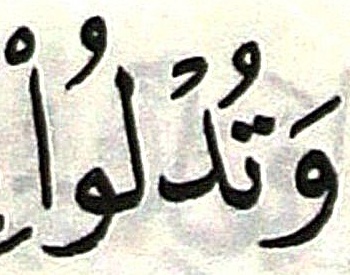 وَتُدْلُواْ